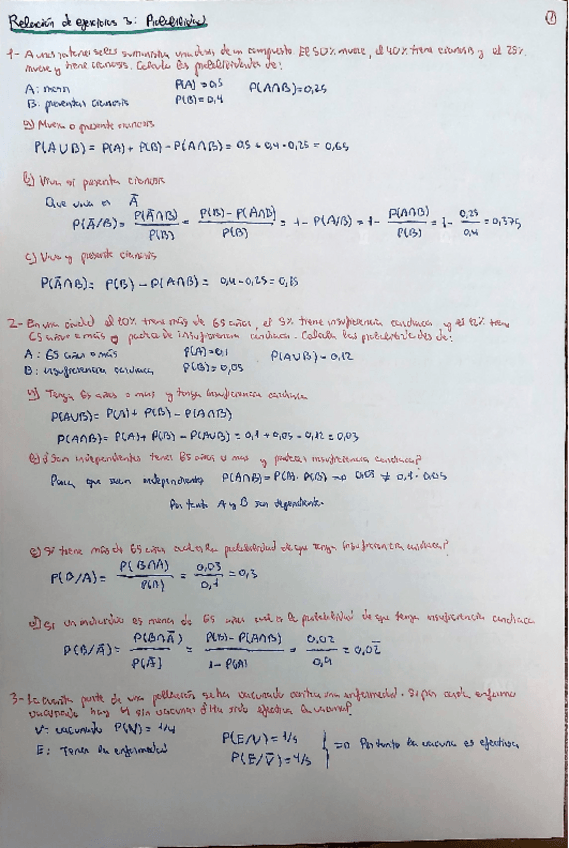 Relación de ejercicios 3: Probabilidad
1
1- A unos ratones se les suministra una dosis de un compuesto. El 50% muere, el 40% tiene cianosis y el 25%
muere y tiene cianosis. Calcula las probabilidades de:
A: muera P(A)=0,5 P(A∩B)=0,25
B: presentar cianosis P(B)=0,4
a) Muera o presente cianosis
P(A∪B) = P(A) + P(B) - P(A∩B) = 0,5 + 0,4 - 0,25 = 0,65
b) Viva si presenta cianosis
Que viva es Ā
P(Ā/B) = P(Ā∩B)/P(B) = P(B) - P(A∩B)/P(B) = 1 - P(A/B) = 1 - P(A∩B)/P(B) = 1 - 0,25/0,4 = 0,375
c) Viva y presente cianosis
P(Ā∩B) = P(B) - P(A∩B) = 0,4 - 0,25 = 0,15
2- En una ciudad el 10% tiene más de 65 años, el 5% tiene insuficiencia cardiaca y el 12% tiene
65 años o más y padece de insuficiencia cardiaca. Calcula las probabilidades de:
A: 65 años o más P(A)=0,1 P(A∪B)=0,12
B: insuficiencia cardiaca P(B)=0,05
a) Tenga 65 años o mas y tenga insuficiencia cardiaca
P(A∪B) = P(A) + P(B) - P(A∩B)
P(A∩B) = P(A) + P(B) - P(A∪B) = 0,1 + 0,05 - 0,12 = 0,03
b) ¿Son independientes tener 65 años o mas y padecer insuficiencia cardiaca?
Para que sean independientes P(A∩B) = P(A)·P(B) => 0,03 ≠ 0,1·0,05
Por tanto A y B son dependientes
c) Si tiene más de 65 años cual es la probabilidad de que tenga insuficiencia cardiaca?
P(B/A) = P(B∩A)/P(A) = 0,03/0,1 = 0,3
d) Si un individuo es menor de 65 años cual es la probabilidad de que tenga insuficiencia cardiaca
P(B/Ā) = P(B∩Ā)/P(Ā) = P(B) - P(A∩B)/1 - P(A) = 0,02/0,9 = 0,02
3- La cuarta parte de una población se ha vacunado contra una enfermedad. Si por cada enfermo
vacunado hay 4 sin vacunar ¿Ha sido efectiva la vacuna?
V: vacunado P(V) = 1/4 P(E/V) = 1/5
E: Tener la enfermedad P(E/V̄) = 4/5 => Por tanto la vacuna es efectiva